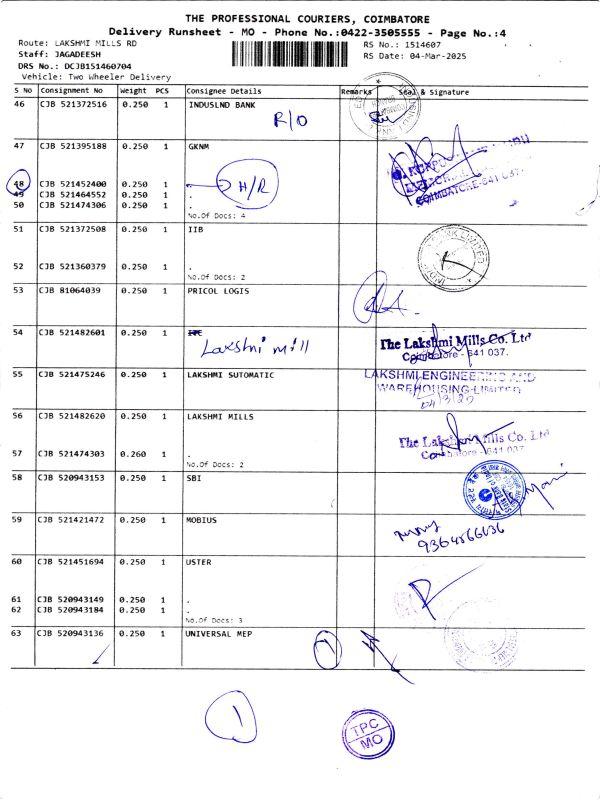 THE PROFESSIONAL COURIERS, COIMBATORE
Delivery Runsheet - MO - Phone No.:0422-3505555 - Page No.:4
Route: LAKSHMI MILLS RD
RS No.: 1514607
Staff: JAGADEESH
RS Date: 04-Mar-2025
DRS No.: DCJB151460704
Vehicle: Two Wheeler Delivery
S No Consignment No Weight PCS Consignee Details Remarks Seal & Signature
46 CJB 521372516 0.250 1 INDUSLND BANK
R/O
47 CJB 521395188 0.250 1 GKNM
COIMBATORE-641 037.
48 CJB 521452400 0.250 1 H/R
49 CJB 521464552 0.250 1 .
50 CJB 521474306 0.250 1 .
No.Of Docs: 4
51 CJB 521372508 0.250 1 IIB
52 CJB 521360379 0.250 1 .
No.Of Docs: 2
53 CJB 81064039 0.250 1 PRICOL LOGIS
54 CJB 521482601 0.250 1
Lakshmi Mill
The Lakshmi Mills Co. Ltd
Coimbatore - 641 037.
55 CJB 521475246 0.250 1 LAKSHMI SUTOMATIC
LAKSHMI ENGINEERING AND
WAREHOUSING LIMITED
56 CJB 521482620 0.250 1 LAKSHMI MILLS
The Lakshmi Mills Co. Ltd
Coimbatore - 641 037.
57 CJB 521474303 0.260 1 .
No.Of Docs: 2
58 CJB 520943153 0.250 1 SBI
59 CJB 521421472 0.250 1 MOBIUS
60 CJB 521451694 0.250 1 USTER
61 CJB 520943149 0.250 1 .
62 CJB 520943184 0.250 1 .
No.Of Docs: 3
63 CJB 520943136 0.250 1 UNIVERSAL MEP
1
1
TPC
MO